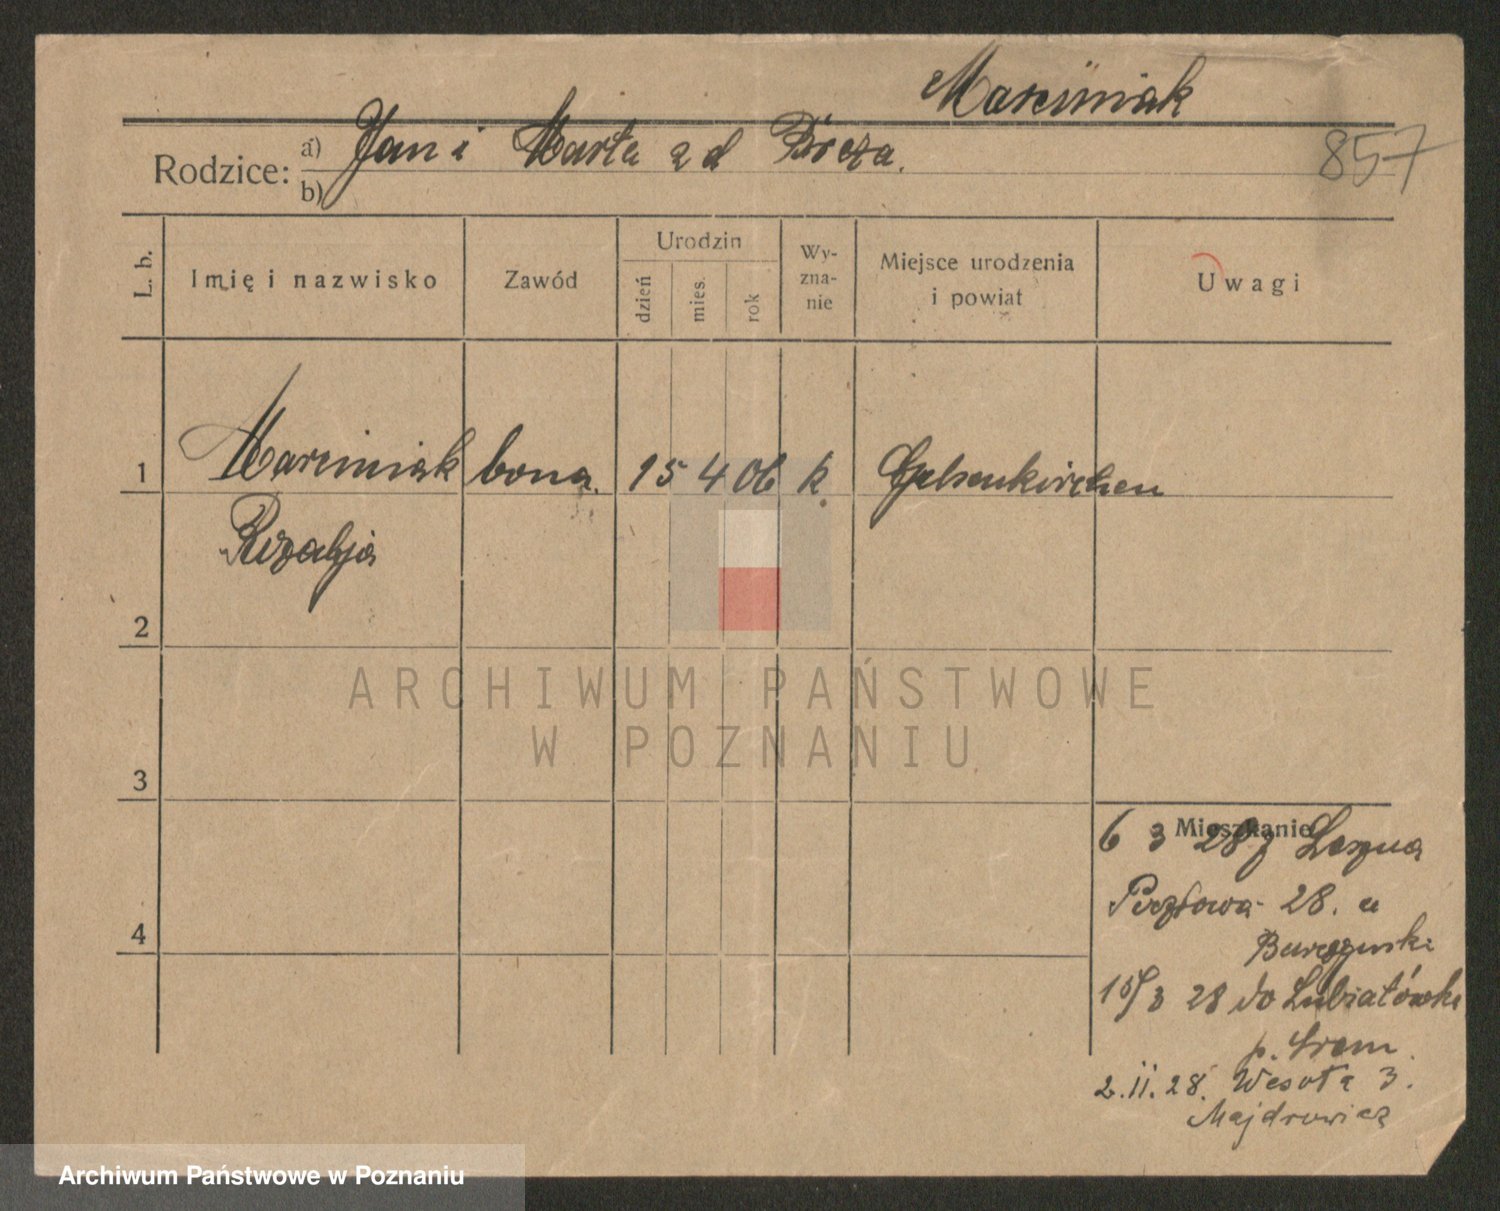 Marciniak
857
Rodzice: a) Jan i Marta z d
b)
L. b.
Imię i nazwisko
Zawód
Urodzin
dzień
mies.
rok
Wy-
zna-
nie
Miejsce urodzenia
i powiat
Uwagi
1 Marciniak bona. 15 4 06 k. Gelsenkirchen
Rozalja
2
ARCHIWUM PAŃSTWOWE
W POZNANIU
3
Mieszkanie
6 3 28 z Leszna
Pocztowa 28. u
4
15/3 28 do Lubiatówka
p. Śrem.
2.11.28. Wesoła 3.
Majdrowicz
Archiwum Państwowe w Poznaniu